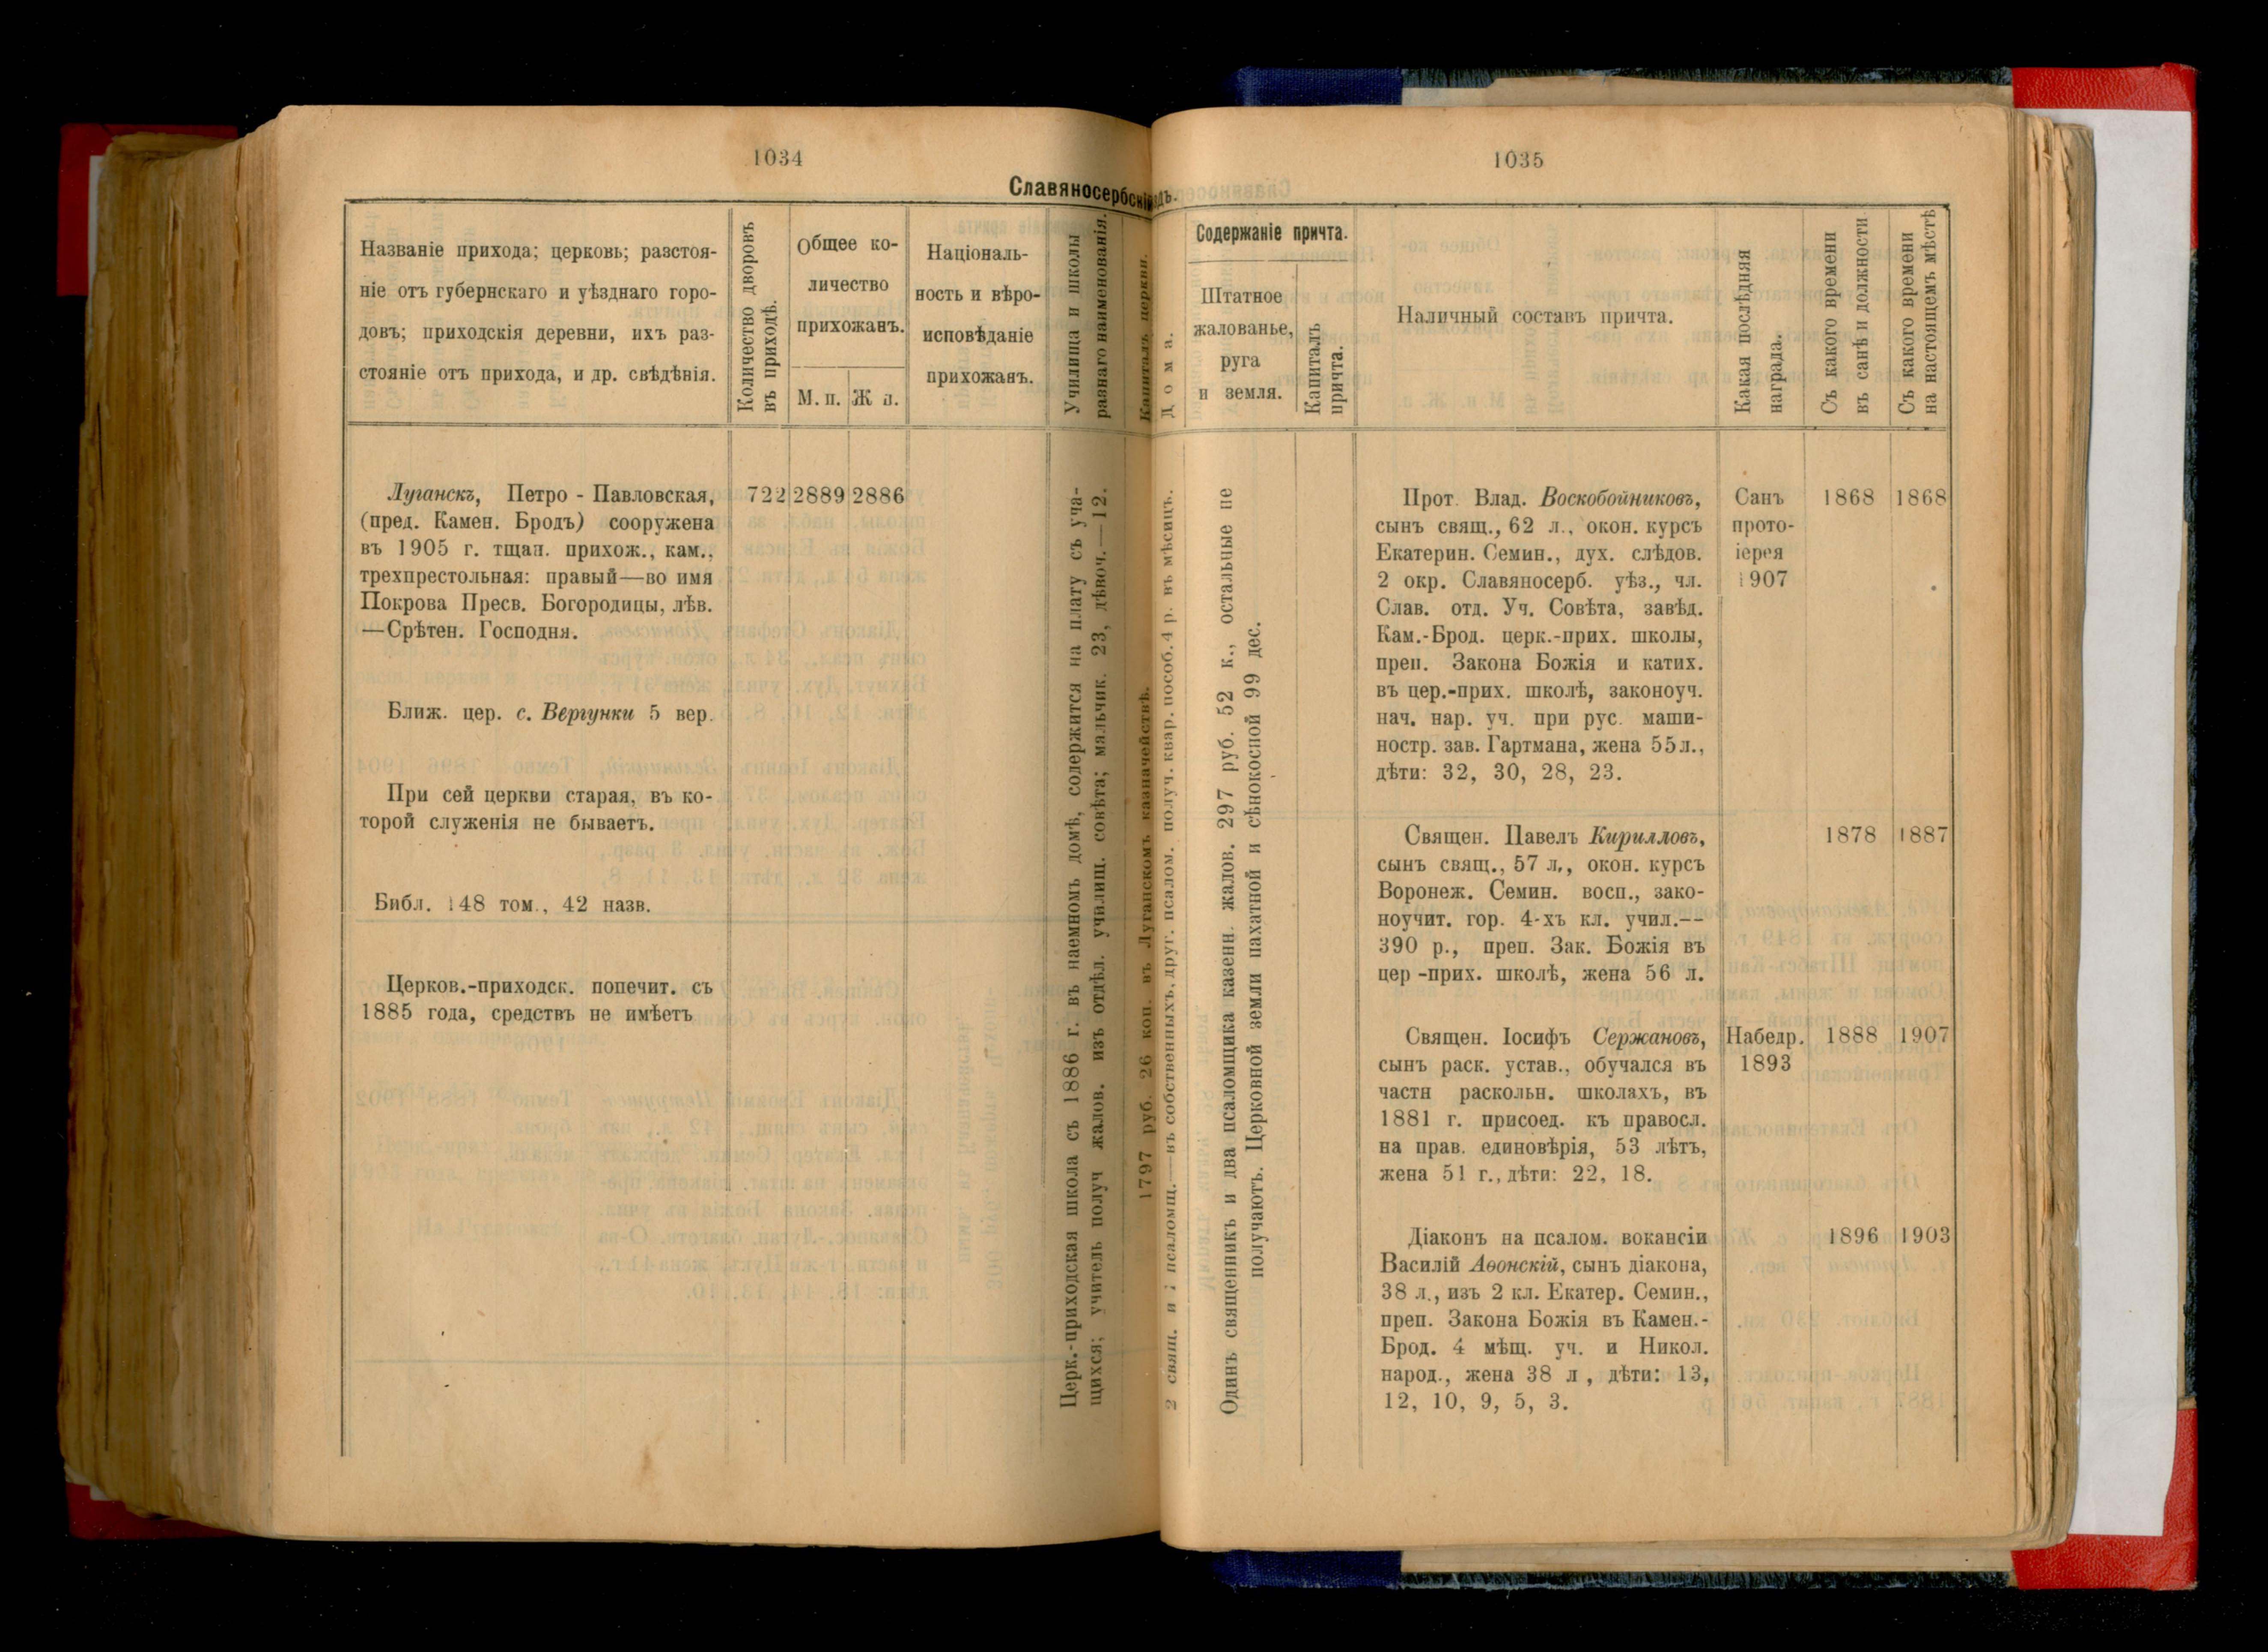 1034
Славяносербскій
Названіе прихода; церковь; разстоя-
ніе отъ губернскаго и уѣзднаго горо-
довъ; приходскія деревни, ихъ раз-
стояніе отъ прихода, и др. свѣдѣнія.
Количество дворовъ
въ приходѣ.
Общее ко-
личество
прихожанъ.
М. п.
Ж п.
Національ-
ность и вѣро-
исповѣданіе
прихожанъ.
Училища и школы
разнаго наименованія.
Капиталъ церкви.
Луганскъ, Петро - Павловская,
(пред. Камен. Бродъ) сооружена
въ 1905 г. тщан. прихож., кам.,
трехпрестольная: правый—во имя
Покрова Пресв. Богородицы, лѣв.
—Срѣтен. Господня.
722
2889
2886
Ближ. цер. с. Вергунки 5 вер.
При сей церкви старая, въ ко-
торой служенія не бываетъ.
Библ. 148 том., 42 назв.
Церков.-приходск. попечит. съ
1885 года, средствъ не имѣетъ
Церк.-приходская школа съ 1886 г. въ наемномъ домѣ, содержится на плату съ уча-
щихся; учитель получ жалов. изъ отдѣл. училищ. совѣта; мальчик. 23, дѣвоч.—12.
1797 руб. 26 коп. въ Луганскомъ казначействѣ.
1035
здъ.
Дома.
Содержаніе причта.
Штатное
жалованье,
руга
и земля.
Капиталъ
причта.
Наличный составъ причта.
Какая послѣдняя
награда.
Съ какого времени
въ санѣ и должности
Съ какого времени
на настоящемъ мѣстѣ
2 свящ. и 1 псаломщ.—въ собственныхъ, друг. псалом. получ. квар. пособ. 4 р. въ мѣсяцъ.
Одинъ священникъ и два псаломщика казенн. жалов. 297 руб. 52 к., остальные не
получаютъ. Церковной земли пахатной и сѣнокосной 99 дес.
Прот. Влад. Воскобойниковъ,
сынъ свящ., 62 л., окон. курсъ
Екатерин. Семин., дух. слѣдов.
2 окр. Славяносерб. уѣз., чл.
Слав. отд. Уч. Совѣта, завѣд.
Кам.-Брод. церк.-прих. школы,
преп. Закона Божія и катих.
въ цер.-прих. школѣ, законоуч.
нач. нар. уч. при рус. маши-
ностр. зав. Гартмана, жена 55 л.,
дѣти: 32, 30, 28, 23.
Санъ
прото-
іерея
1907
1868
1868
Священ. Павелъ Кирилловъ,
сынъ свящ., 57 л., окон. курсъ
Воронеж. Семин. восп., зако-
ноучит. гор. 4-хъ кл. учил.—
390 р., преп. Зак. Божія въ
цер -прих. школѣ, жена 56 л.
1878
1887
Священ. Іосифъ Сержановъ,
сынъ раск. устав., обучался въ
частн раскольн. школахъ, въ
1881 г. присоед. къ правосл.
на прав. единовѣрія, 53 лѣтъ,
жена 51 г., дѣти: 22, 18.
Набедр.
1893
1888
1907
Діаконъ на псалом. вокансіи
Василій Аѳонскій, сынъ діакона,
38 л., изъ 2 кл. Екатер. Семин.,
преп. Закона Божія въ Камен.-
Брод. 4 мѣщ. уч. и Никол.
народ., жена 38 л , дѣти: 13,
12, 10, 9, 5, 3.
1896
1903